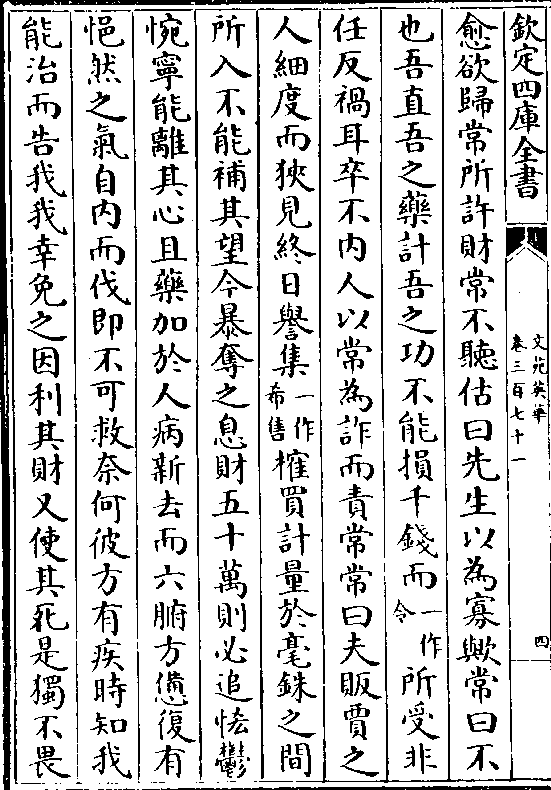 欽定四庫全書
文苑英華
卷三百七十一
四
愈欲歸常所許財常不聽估曰先生以為寡歟常曰不
也吾直吾之藥計吾之功不能損千錢而一作令所受非
任反禍耳卒不内人以常為詐而責常常曰夫販賈之
人細度而狹見終日譽集一作希售榷買計量於毫銖之間
所入不能補其望今暴奪之息財五十萬則必追恡鬱
惋寧能離其心且藥加於人病新去而六腑方憊復有
悒然之氣自内而伐即不可救奈何彼方有疾時知我
能治而告我我幸免之因利其財又使其死是獨不畏